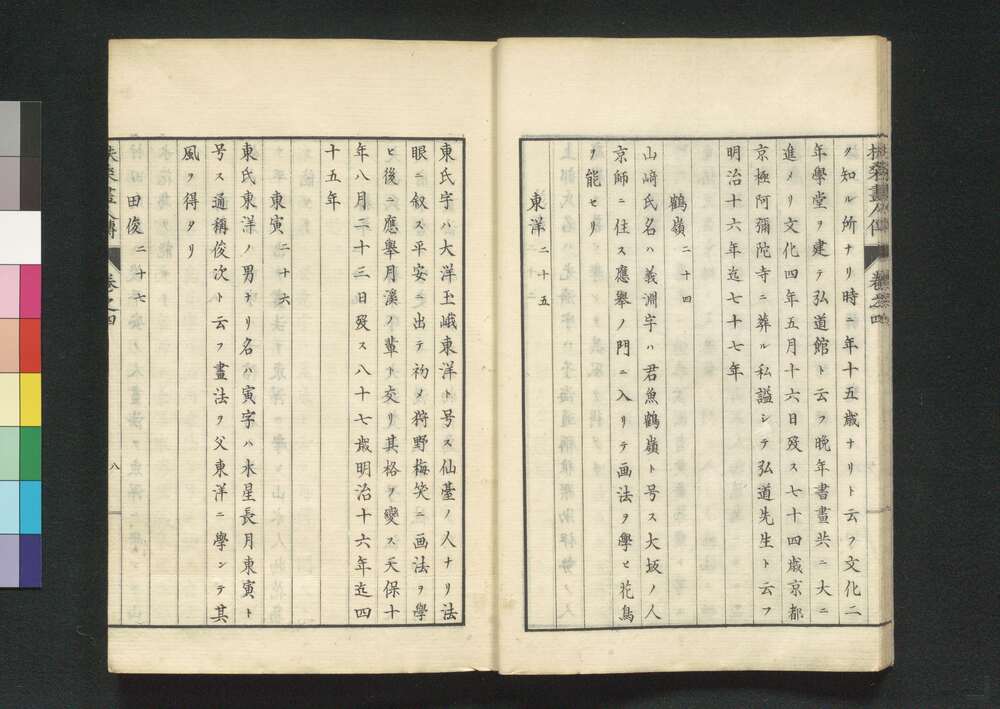 ヲ知ル所ナリ時ニ年十五歳ナリト云フ文化二
年學堂ヲ建テ弘道館ト云フ晩年書畫共ニ大ニ
進メリ文化四年五月十六日歿ス七十四歳京都
京極阿彌陀寺ニ葬ル私謚シテ弘道先生ト云フ
明治十六年迄七十七年
鶴嶺 二十四
山﨑氏名ハ義淵字ハ君魚鶴嶺ト号ス大坂ノ人
京師ニ住ス應舉ノ門ニ入リテ画法ヲ學ヒ花鳥
ヲ能セリ
東洋 二十五
東氏字ハ大洋玉峨東洋ト号ス仙臺ノ人ナリ法
眼ニ叙ス平安ニ出テ初メ狩野梅笑ニ画法ヲ學
ヒ後ニ應舉月溪ノ輩ト交リ其格ヲ變ス天保十
年八月二十三日歿ス八十七歳明治十六年迄四
十五年
東寅 二十六
東氏東洋ノ男ナリ名ハ寅字ハ水星長月東寅ト
号ス通稱俊次ト云フ畫法ヲ父東洋ニ學ンテ其
風ヲ得タリ
田俊 二十七
卷之四
八